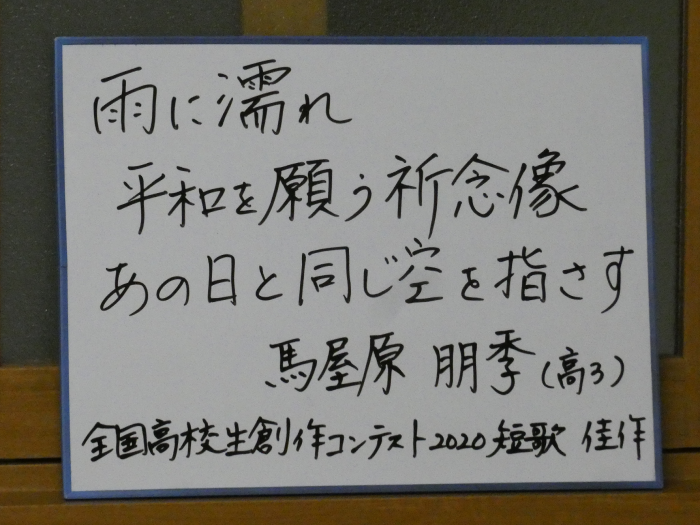 雨に濡れ
平和を願う祈念像
あの日と同じ空を指さす
馬屋原 朋季(高3)
全国高校生創作コンテスト2020 短歌 佳作